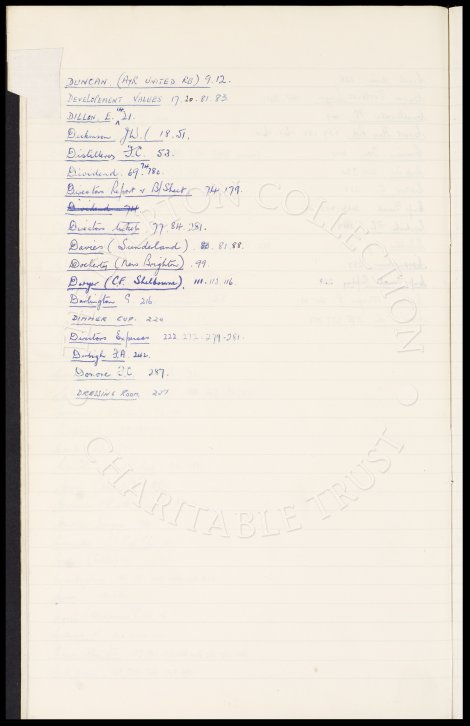 DUNCAN (AYR UNITED RB) 9.12.
DEVELOPEMENT VALUES 17.20.81.83
DILLON, E. 21.
Dickinson J.W. ( 18.51.
Distillery F.C. 53.
Dividend 69. 74. 180.
Directors Report & B/Sheet. 74.179.
Dividend 74
Directors 77.84.281.
Davies (Sunderland) 81.88.
Docherty (New Brighton) 99.
Dwyer (C.F. Shelbourne). 111.113.116.
Darlington G 216
DINNER CUP. 220
Directors Expenses 222.272.279.281.
Denbigh F.A. 242.
Donore F.C. 287.
DRESSING ROOM 287
COLLECTION
CHARITABLE TRUST